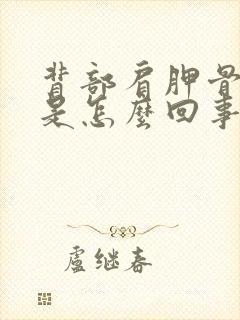 背部肩胛骨
是怎麼回事
盧继春